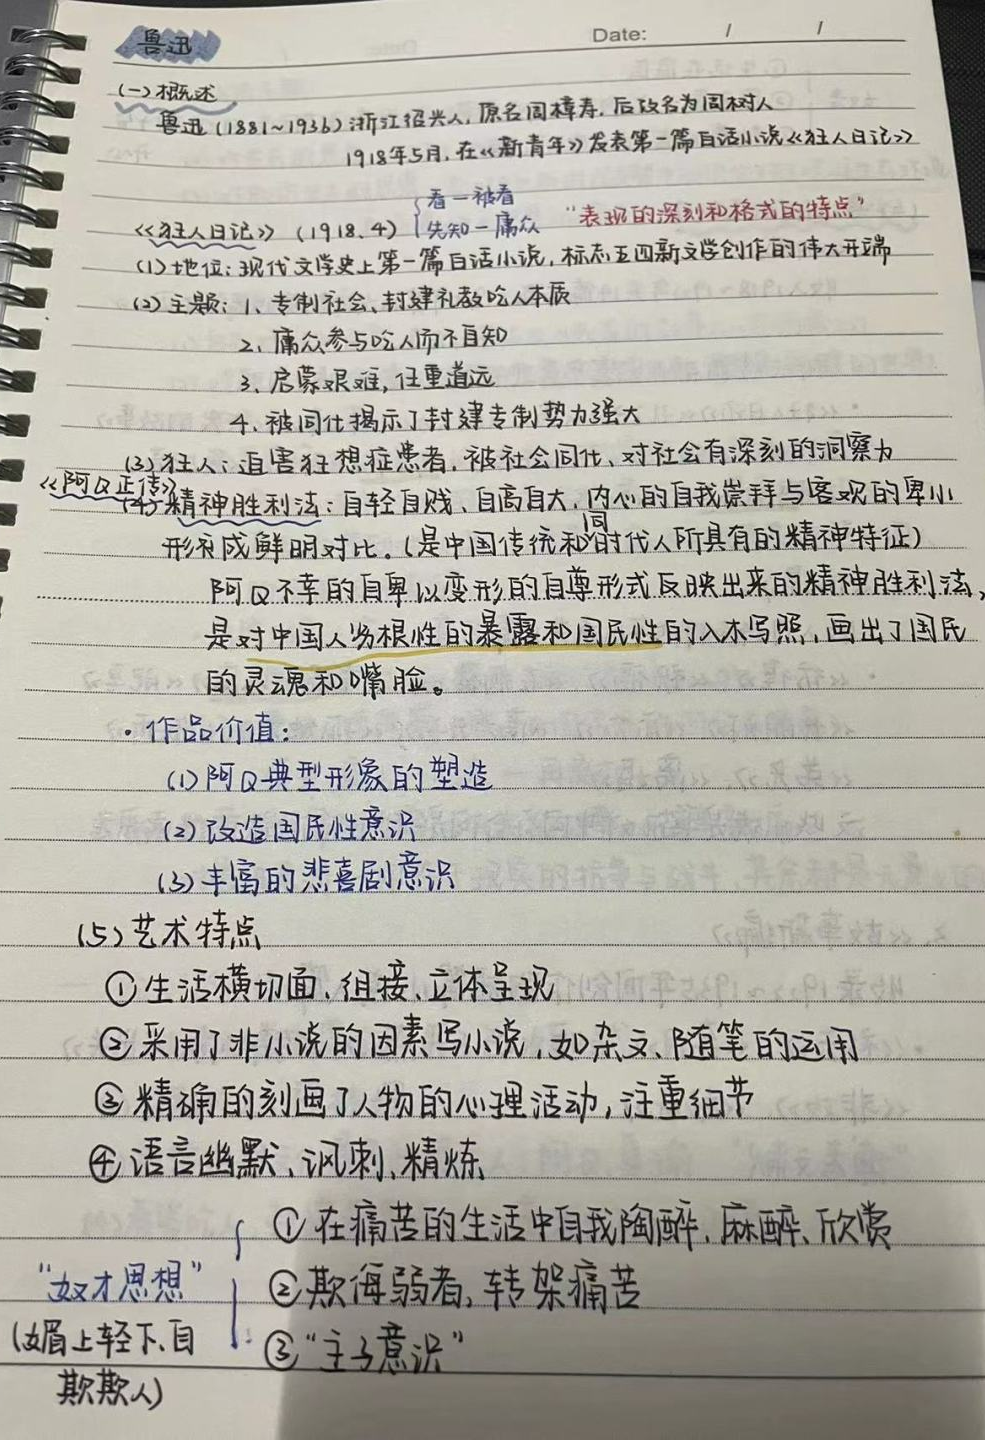 鲁迅
Date: / /
(一)概述
鲁迅(1881~1936)浙江绍兴人,原名周樟寿,后改名为周树人
1918年5月,在《新青年》发表第一篇白话小说《狂人日记》
看—被看
《狂人日记》(1918.4) 先知—庸众 “表现的深刻和格式的特点”
(1)地位:现代文学史上第一篇白话小说,标志五四新文学创作的伟大开端
(2)主题:1、专制社会、封建礼教吃人本质
2、庸众参与吃人而不自知
3、启蒙艰难,任重道远
4、被同化揭示了封建专制势力强大
(3)狂人:迫害狂想症患者,被社会同化、对社会有深刻的洞察力
《阿Q正传》
(4)精神胜利法:自轻自贱、自高自大,内心的自我崇拜与客观的卑小
形成鲜明对比。(是中国传统和同时代人所具有的精神特征)
阿Q不幸的自卑以变形的自尊形式反映出来的精神胜利法,
是对中国人劣根性的暴露和国民性的入木写照,画出了国民
的灵魂和嘴脸。
·作品价值:
(1)阿Q典型形象的塑造
(2)改造国民性意识
(3)丰富的悲喜剧意识
(5)艺术特点
①生活横切面、组接、立体呈现
②采用了非小说的因素写小说,如杂文、随笔的运用
③精确的刻画了人物的心理活动,注重细节
④语言幽默、讽刺、精炼
①在痛苦的生活中自我陶醉、麻醉、欣赏
“奴才思想” ②欺侮弱者,转架痛苦
(媚上轻下、自 ③“主子意识”
欺欺人)